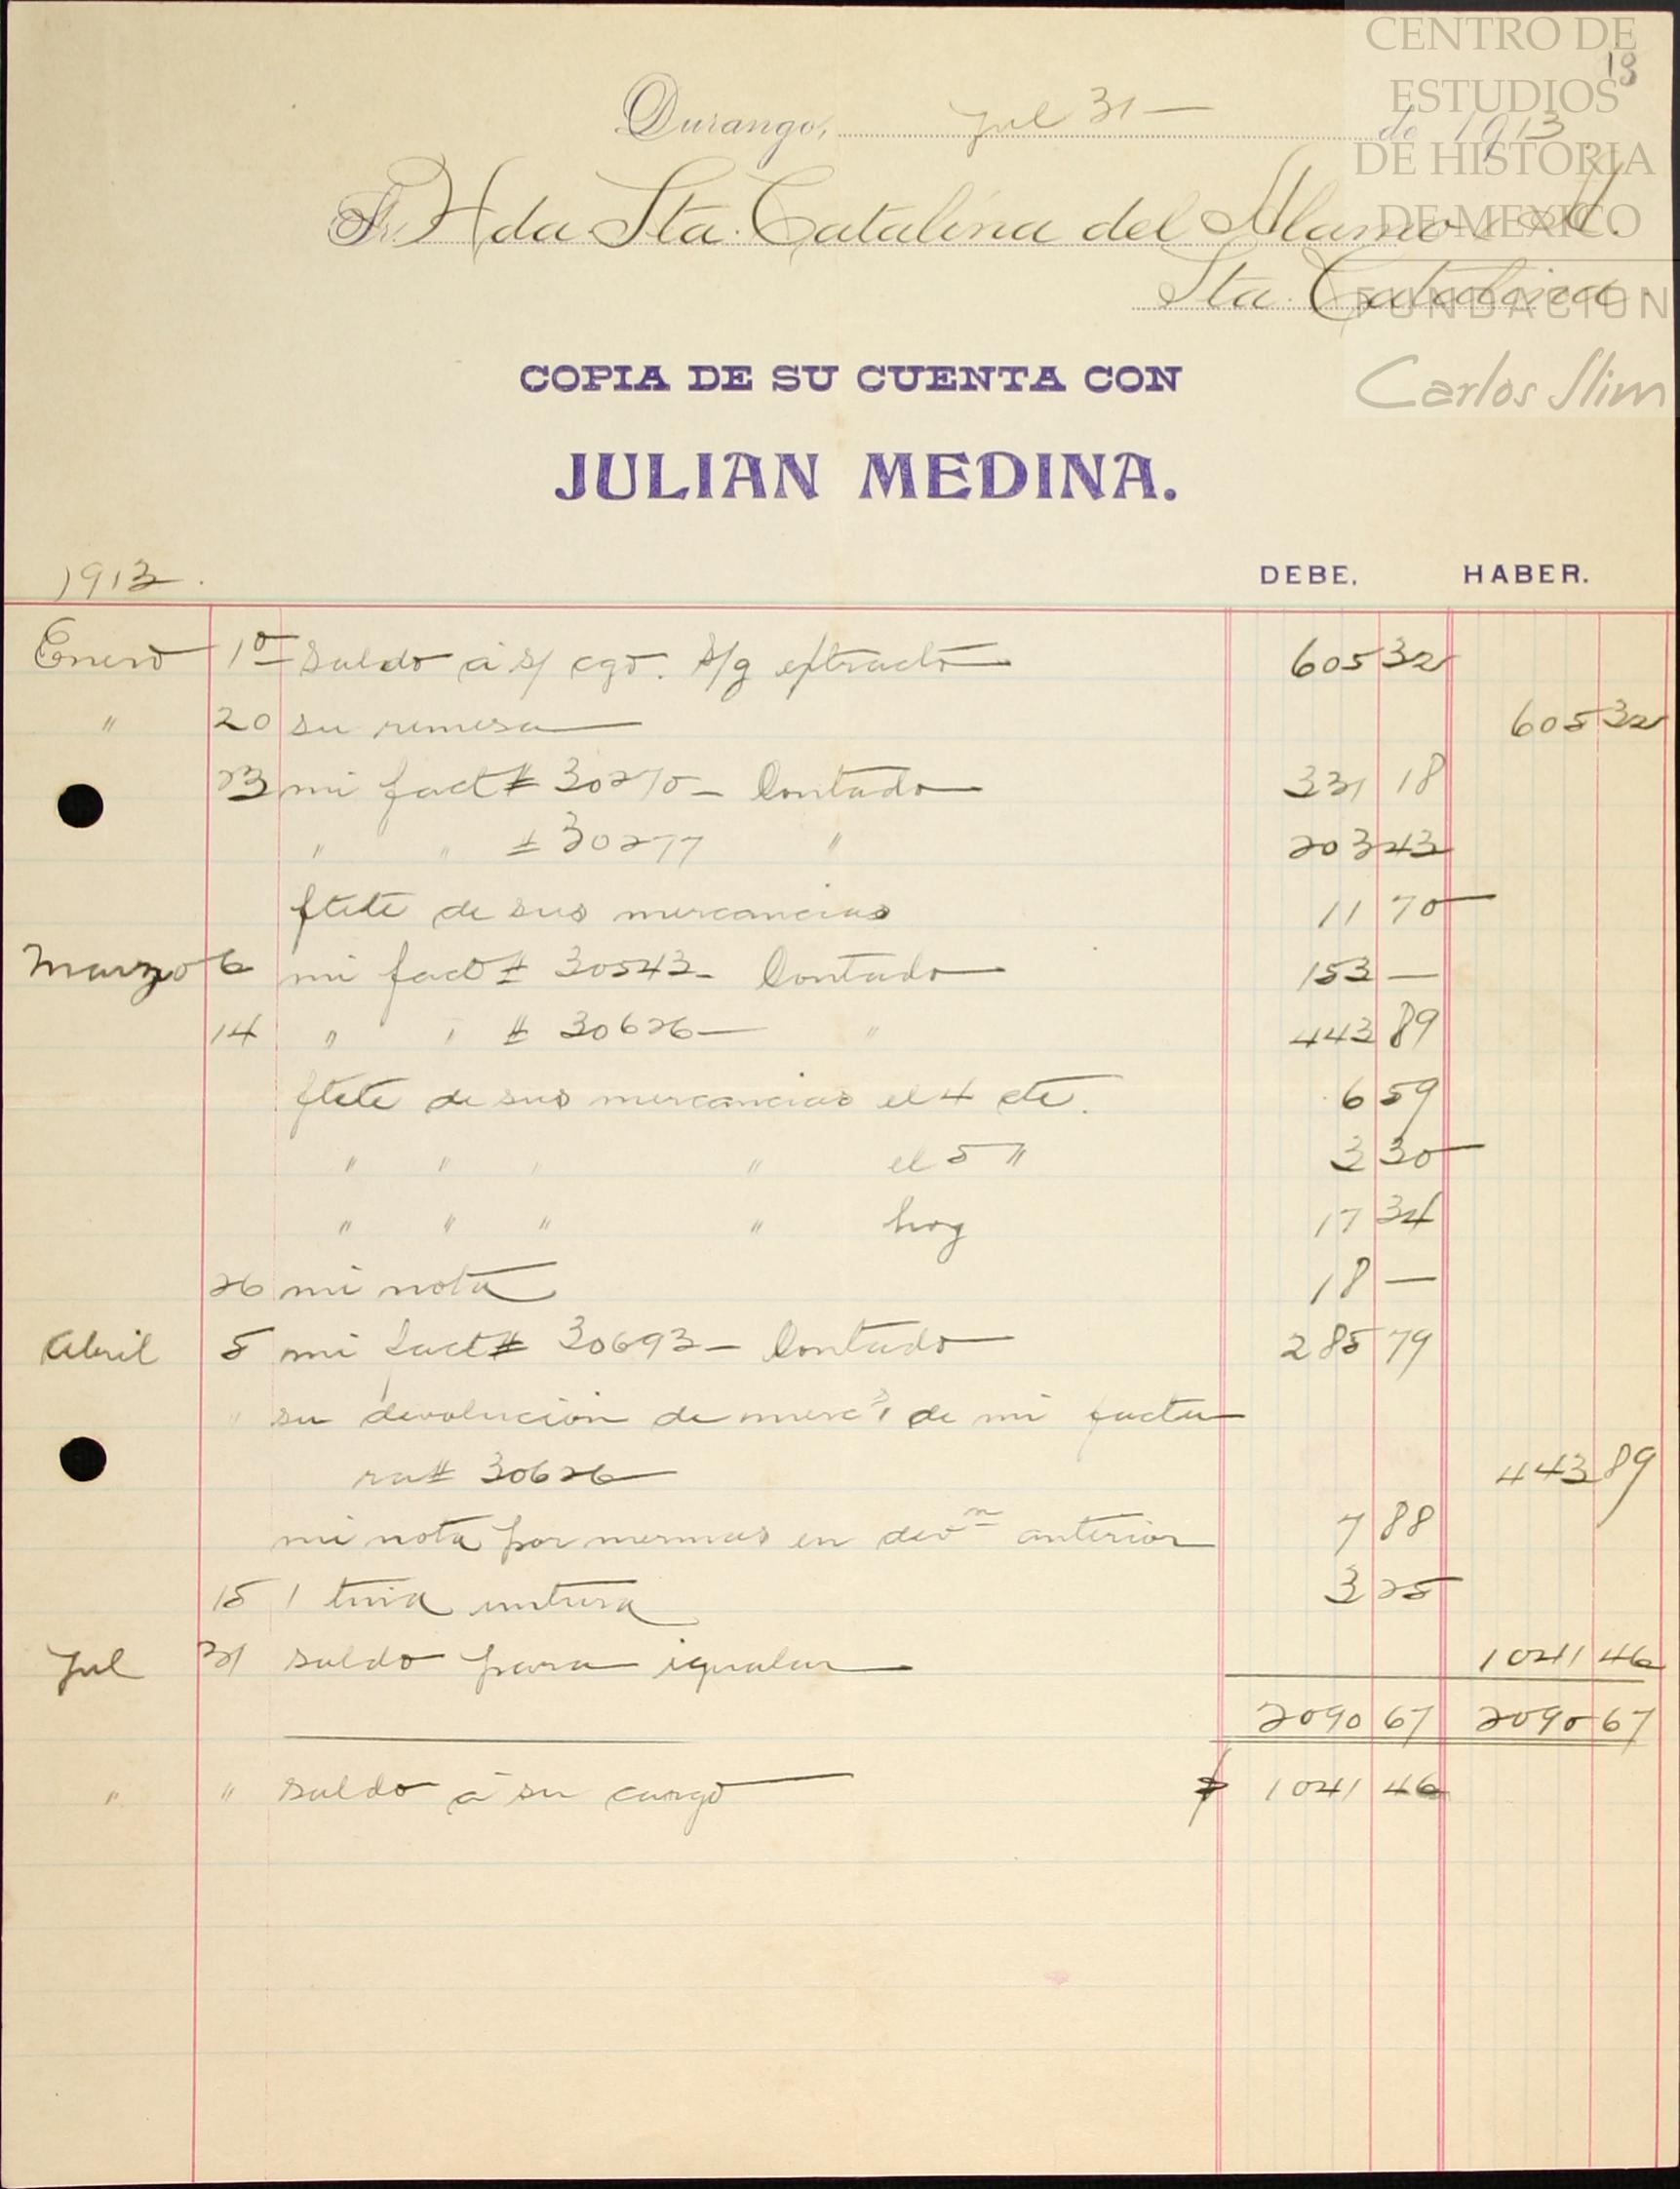 CENTRO DE
ESTUDIOS
DE HISTORIA
DE MEXICO
FUNDACION
Carlos Slim
13
Durango, Jul 31 — de 1913
Sr. Hda Sta. Catalina del Alamo
Sta. Catalina.
COPIA DE SU CUENTA CON
JULIAN MEDINA.
1913. DEBE. HABER.
Enero 1º saldo á s/ cgo. s/g extracto 605 32
" 20 su remesa 605 32
23 mi fact # 30270 — Contado 331 18
" " # 30277 " 203 43
flete de sus mercancias 11 70
Marzo 6 mi fact # 30543 — Contado 153 —
14 " " # 30626 — " 443 89
flete de sus mercancias el 4 cte. 6 59
" " " " el 5 " 3 30
" " " " hoy 17 34
26 mi nota 18 —
Abril 5 mi fact # 30693 — Contado 285 79
" su devolución de mercs de mi factu
ra # 30626 443 89
mi nota por mermas en devn anterior 7 88
15 1 tina untura 3 25
Jul 31 saldo para igualar 1041 46
2090 67 2090 67
" " saldo á su cargo $ 1041 46